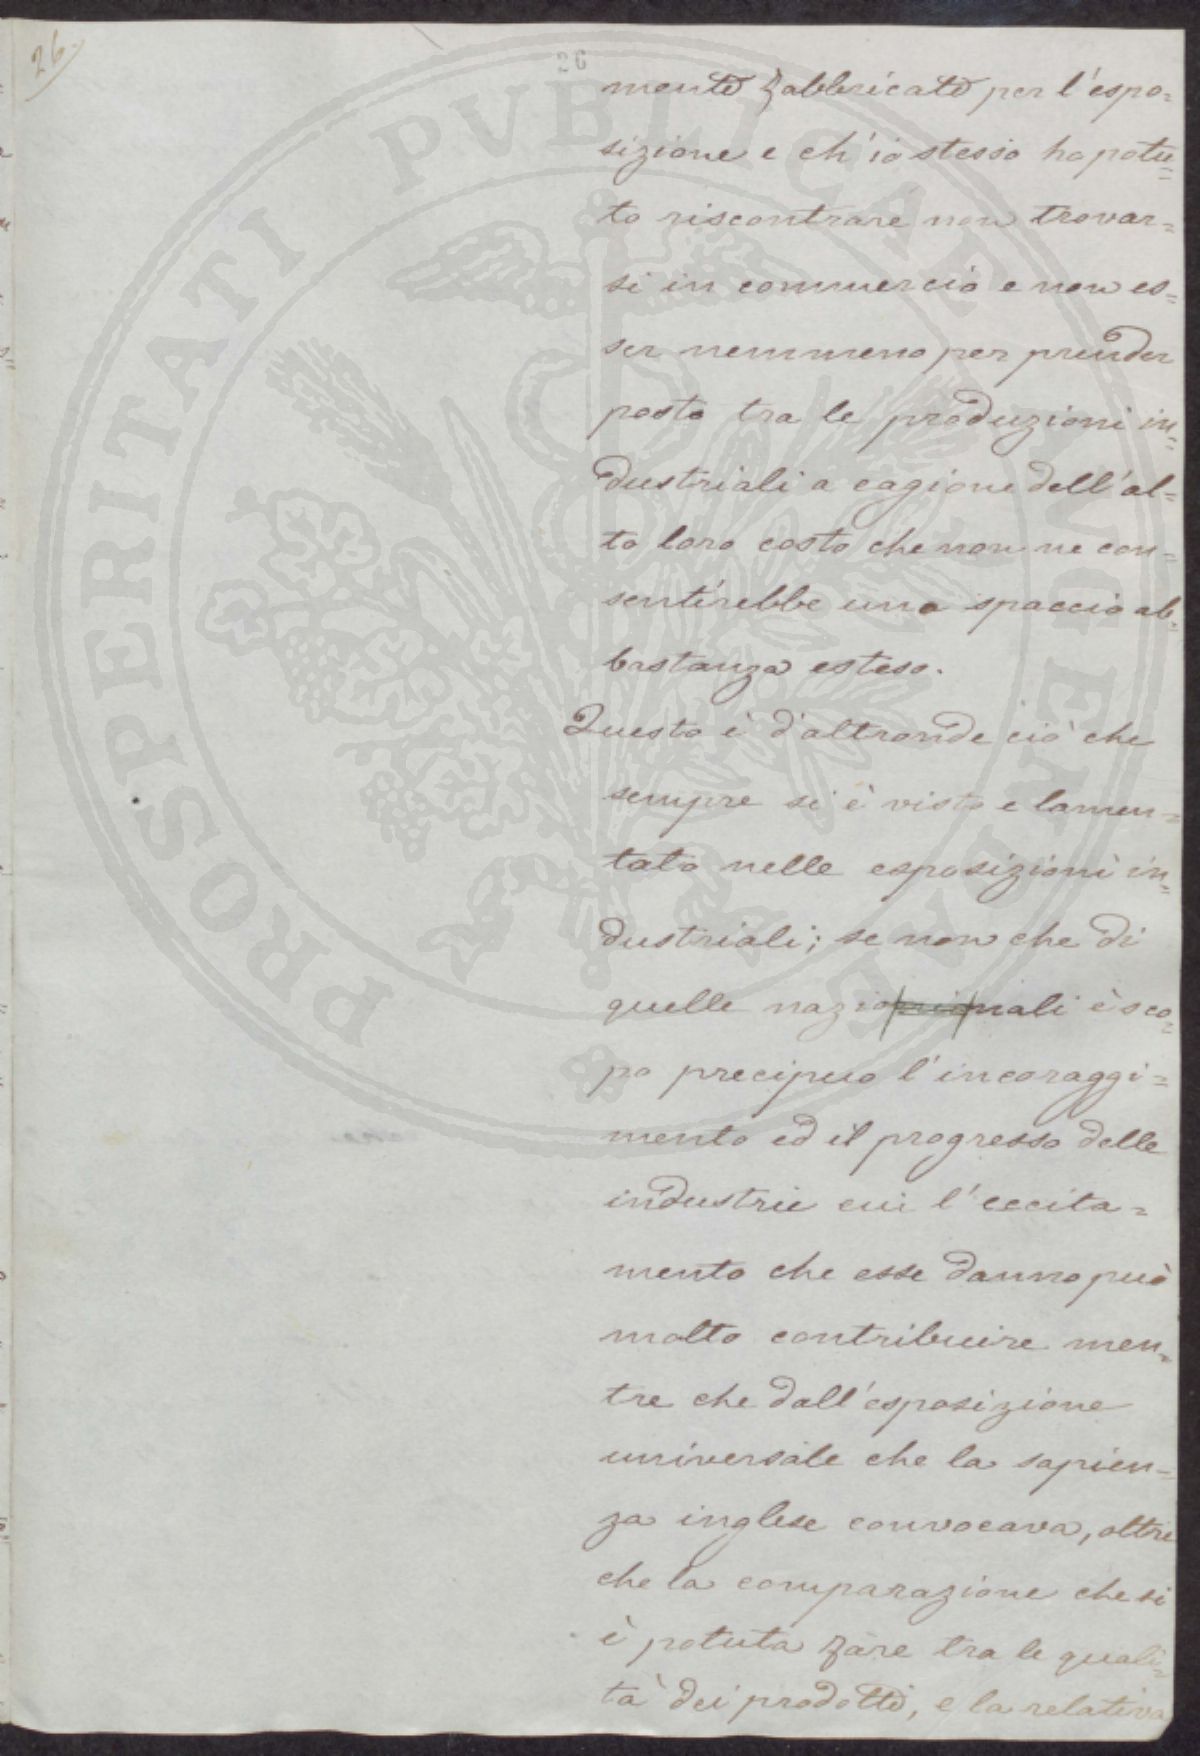 26.
26
mente fabbricate per l'espo=
sizione e ch'io stesso ho potu=
to riscontrare non trovar=
si in commercio e non es=
ser nemmeno per prender
posto tra le produzioni in=
dustriali a cagione dell'al=
to loro costo che non ne con=
sentirebbe uno spaccio ab=
bastanza esteso.
Questo è d'altronde ciò che
sempre si è visto e lamen=
tato nelle esposizioni in=
dustriali; se non che di
quelle nazionali è sco=
po precipuo l'incoraggi=
mento ed il progresso delle
industrie cui l'eccita=
mento che esse danno può
molto contribuire men=
tre che dall'esposizione
universale che la sapien=
za inglese convocava, oltre
che la comparazione che si
è potuta fare tra le quali=
tà dei prodotti, e la relativa
PROSPERITATI PVBLICAE AVGENDAE